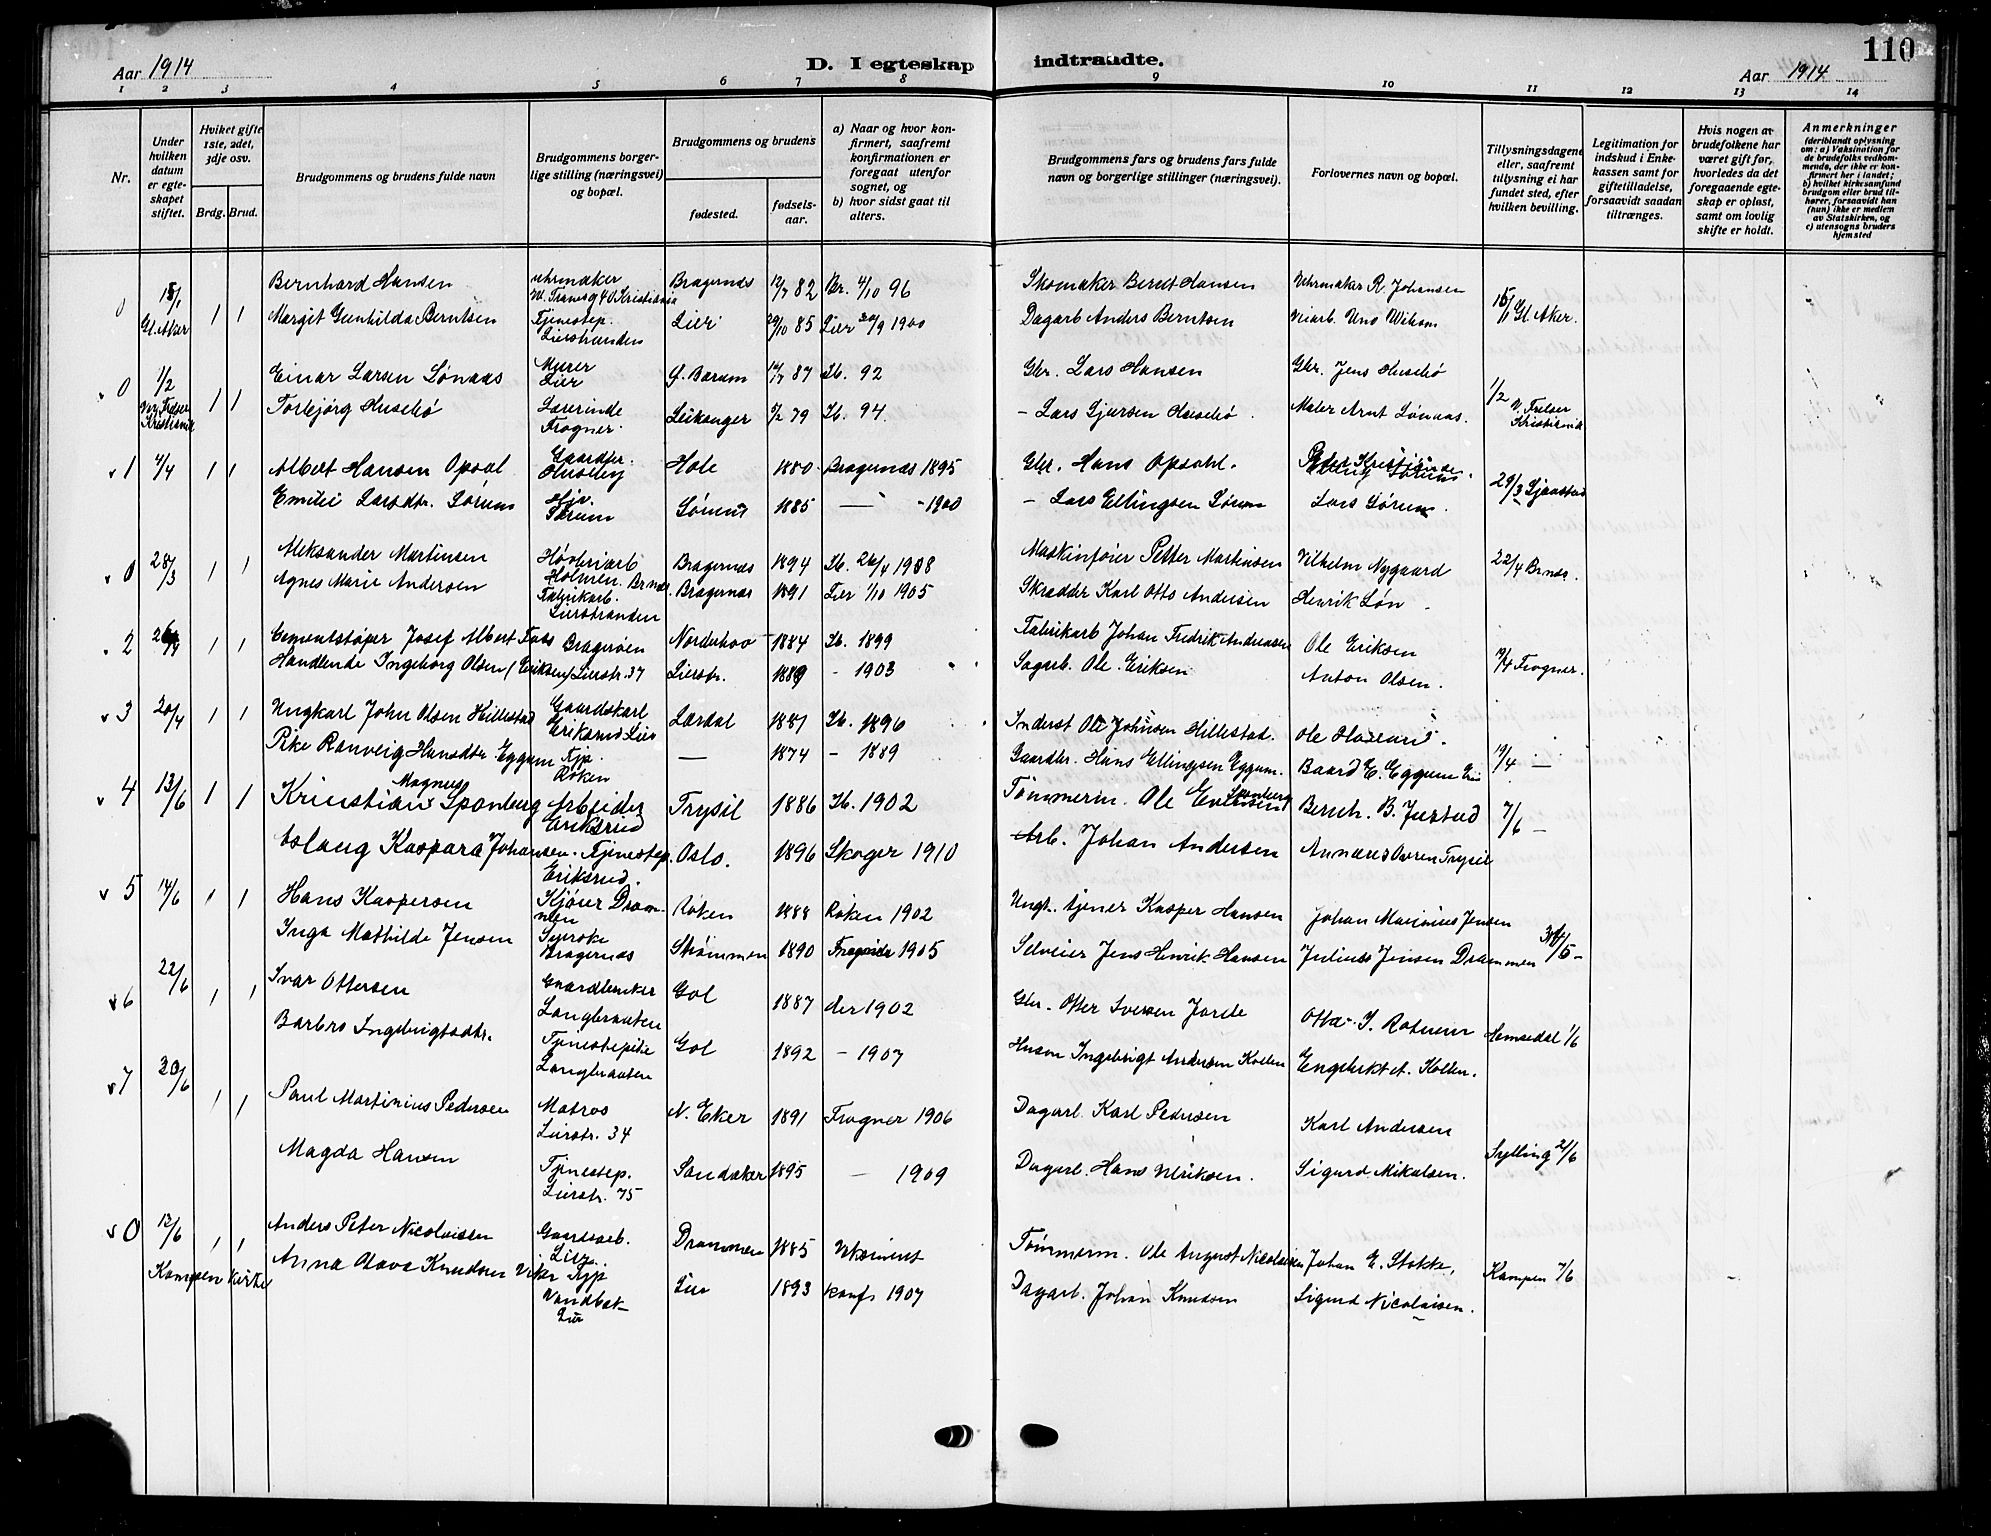 Aar 1914
D. I egteskap indtraadte.
Aar 1914
110
1 2 3 4 5 6 7 8 9 10 11 12 13 14
Nr.
Under hvilken datum er egteskapet stiftet.
Hvilket gifte 1ste, 2det, 3dje osv.
Brdg. Brud.
Brudgommens og brudens fulde navn
Brudgommens borgerlige stilling (næringsvei) og bopæl.
Brudgommens og brudens
fødested.
fødselsaar.
a) Naar og hvor konfirmert, saafremt konfirmationen er foregaat utenfor sognet, og
b) hvor sidst gaat til alters.
Brudgommens fars og brudens fars fulde navn og borgerlige stillinger (næringsvei).
Forlovernes navn og bopæl.
Tillysningsdagene eller, saafremt tillysning ei har fundet sted, efter hvilken bevilling.
Legitimation for indskud i Enkekassen samt for giftetilladelse, forsaavidt saadan tiltrænges.
Hvis nogen av brudefolkene har været gift før, hvorledes da det foregaaende egteskap er opløst, samt om lovlig skifte er holdt.
Anmerkninger (deriblandt oplysning om: a) Vaksination for de brudefolks vedkommende, der ikke er konfirmert her i landet; b) hvilket kirkesamfund brudgom eller brud tilhører, forsaavidt han (hun) ikke er medlem av Statskirken, og c) utensogns bruders hjemsted
0 15/1 Gl. Aker 1 1 Bernhard Hansen Uhrmaker Kristiania Bragernes 12/7 82 Br. 4/10 96 Skomaker Berndt Hansen Uhrmaker R. Johansen 15/1 Gl. Aker.
Margit Gunhilda Berntsen Tjenestep. Lierstranden Lier 29/10 85 Lier 30/9 1900 Dagarb Anders Berntsen
0 1/2 Kristiania 1 1 Einar Larsen Lønaas Murer Lier 87 Ib. 92 Gbr. Lars Hansen Gbr. Jens Husebø 1/2 V. Frelser Kristiania
Torbjørg Husebø Lærerinde Frogner. Leikanger 7/2 79 Ib. 94. – Lars Husebø. Maler Arnt Lønaas.
v 1 4/4 1 1 Albert Hansen Opsal Hole 1880 Bragernæs 1895 Gbr. Hans Opsahl. 29/3 Sjaastad
Emilie Larsdtr. Sørum Hjv. Sørum Sørum 1885 — - 1900 – Lars Ellingsen Sørum Lars Sørum.
v 0 28/3 1 1 Aleksander Martinsen Høvleriarb Holmen. Brnæs. Bragernæs 1894 Ib. 26/4 1908 Maskinfører Petter Martinsen Vilhelm Nygaard 22/4 Brnæs.
Agnes Marie Andersen Fabrikarb. Lierstranden Bragernæs 1891 Lier 1/10 1905 Skrædder Karl Otto Andersen Henrik Løn
2 1 1 Cementstøper Josef Albert Foss Bragerøen Norderhov 1884 Ib. 1899 Fabrikarb Johan Fredrik Andreasen Ole Eriksen
Handlende Ingeborg Olsen (Eriksen) Lierstr. 37 Lierstr. 1889 - 1903 Sagarb. Ole Eriksen Anton Olsen. 19/4 Frogner.
v 3 20/4 1 1 Ungkarl John Olsen Hillestad Gaardskarl Eriksrud Lier Lærdal 1887 Ib. 1896 Inderst Ole Johnsen Hillestad.
Pike Ranveig Hansdtr. Eggum Tjp. Røken — 1874 - 1889 Gaardbr. Hans Ellingsen Eggum. Baard E. Eggum 19/4 —
v 4 13/6 1 1 Kristian Magnus Spanberg Arbeider Eriksrud Trysil 1886 Ib. 1902 Tømmerm. Ole Evensen Spanberg Bernh. B. Justad 7/6 —
Aslaug Kaspara Johansen. Tjenestep. Eriksrud. Oslo. 1896 Skoger 1910 Arb. Johan Andersen
v 5 14/6 1 1 Hans Kaspersen Kjører Drammen Røken 1888 Røken 1902 Ungk. tjener Kasper Hansen Johan Marinius Jensen
Inga Mathilde Jensen Syerske Bragernæs Strømmen 1890 1905 Selveier Jens Henrik Hansen Julius Jensen Drammen 31/5 -
v 6 22/6 1 1 Ivar Ottersen Gaardbruker Langbraaten Gol 1887 der 1902 Gbr. Otter Iversen Jorde
Barbro Ingebrigtsdtr. Tjenestepike Langbraaten Gol 1892 - 1907 Husm Ingebrigt Andersen Kollen Engebrikt A. Kollen. Hemsedal 1/6
v 7 20/6 1 1 Paul Martinius Pedersen Matros Lierstr. 34 N. Eker 1891 Frogner 1906 Dagarb. Karl Pedersen Karl Andersen
Magda Hansen Tjenestep. Lierstr. 75 Sandaker 1895 — 1909 Dagarb. Hans Ulriksen. Sigurd Mikalsen. Sylling 21/6
v 0 12/6 1 1 Anders Peter Nicolaisen Gaardsarb. Drammen 1885 Tømmerm. Ole August Nicolaisen Johan E. Stokke,
Kampen Kirke Anna Olava Knudsen Tjp Lier Lier 1893 konf. 1907 Dagarb. Johan Knudsen Sigurd Nicolaisen. Kampen 7/6